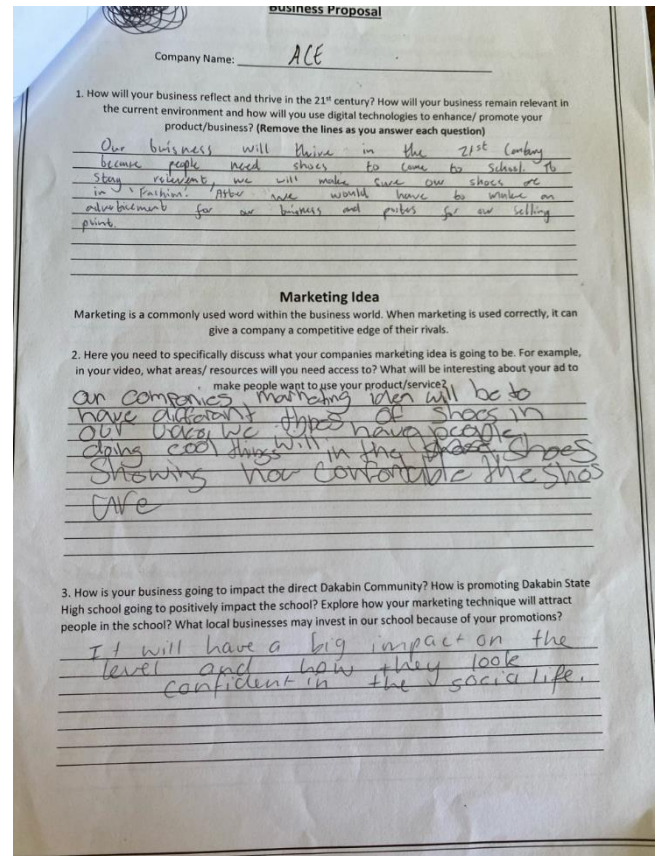 Business Proposal
Company Name: ACE
1. How will your business reflect and thrive in the 21st century? How will your business remain relevant in
the current environment and how will you use digital technologies to enhance/ promote your
product/business? (Remove the lines as you answer each question)
Our buisness will thrive in the 21st Century
because people need shoes to come to School. To
Stay relevent, we will make sure our shoes are
in 'Fashion'. After we would have to make an
for our and for our selling
point.
Marketing Idea
Marketing is a commonly used word within the business world. When marketing is used correctly, it can
give a company a competitive edge of their rivals.
2. Here you need to specifically discuss what your companies marketing idea is going to be. For example,
in your video, what areas/ resources will you need access to? What will be interesting about your ad to
make people want to use your product/service?
our companies marketing idea will be to
have types of shoes in
our we have people
doing cool things will in the shoes
Showing how the shos
are
3. How is your business going to impact the direct Dakabin Community? How is promoting Dakabin State
High school going to positively impact the school? Explore how your marketing technique will attract
people in the school? What local businesses may invest in our school because of your promotions?
It will have a big impact on the
level and how they look
confident in the social life.